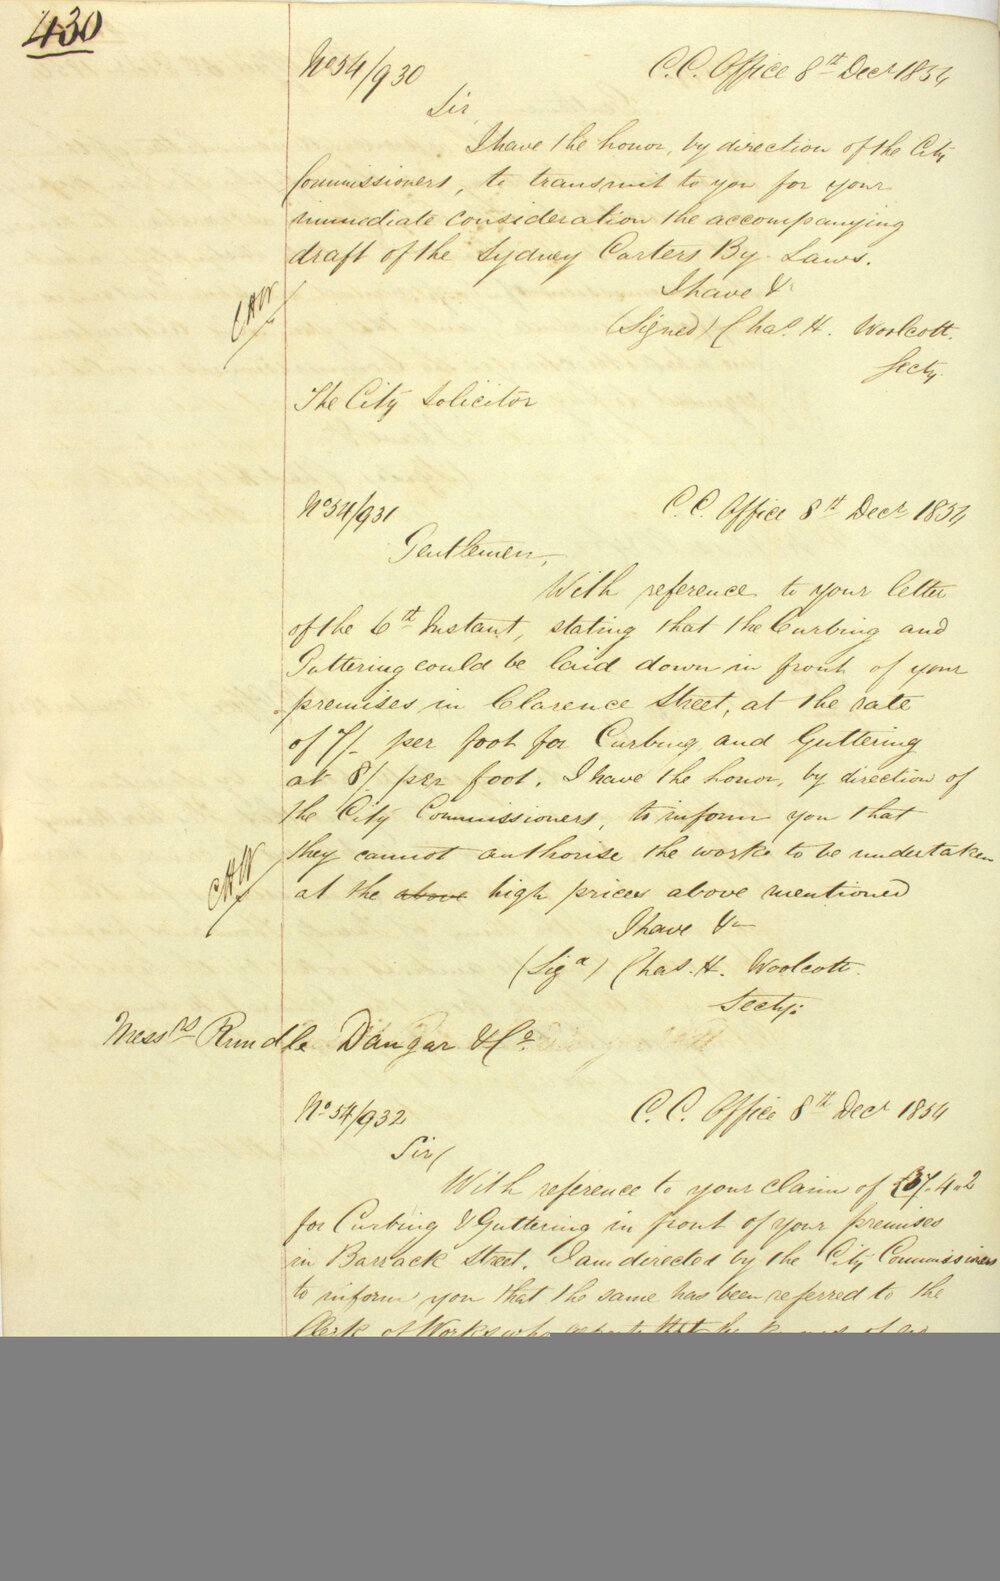 430
No 54/930 C.C. Office 8th Decr 1854
Sir
I have the honor, by direction of the City
Commissioners, to transmit to you for your
immediate consideration the accompanying
draft of the Sydney Carters By-Laws.
I have &c
CHW
(Signed) Chas. H. Woolcott.
Secty.
The City Solicitor
No 54/931 C.C. Office 8th Decr 1854
Gentlemen,
With reference to your letter
of the 6th Instant, stating that the Curbing and
Guttering could be laid down in front of your
premises in Clarence Street, at the rate
of 7/- per foot for Curbing and Guttering
at 8/ per foot. I have the honor, by direction of
the City Commissioners, to inform you that
they cannot authorise the works to be undertaken
CHW
at the above high prices above mentioned
I have &c
(Sigd) Chas. H. Woolcott.
Secty:
Messrs Rundle Dangar & Co.
No 54/932 C.C. Office 8th Decr 1854
Sir,
With reference to your claim of £37.4.2
for Curbing & Guttering in front of your premises
in Barrack Street. I am directed by the City Commissioners
to inform you that the same has been referred to the
Clerk of Works who the